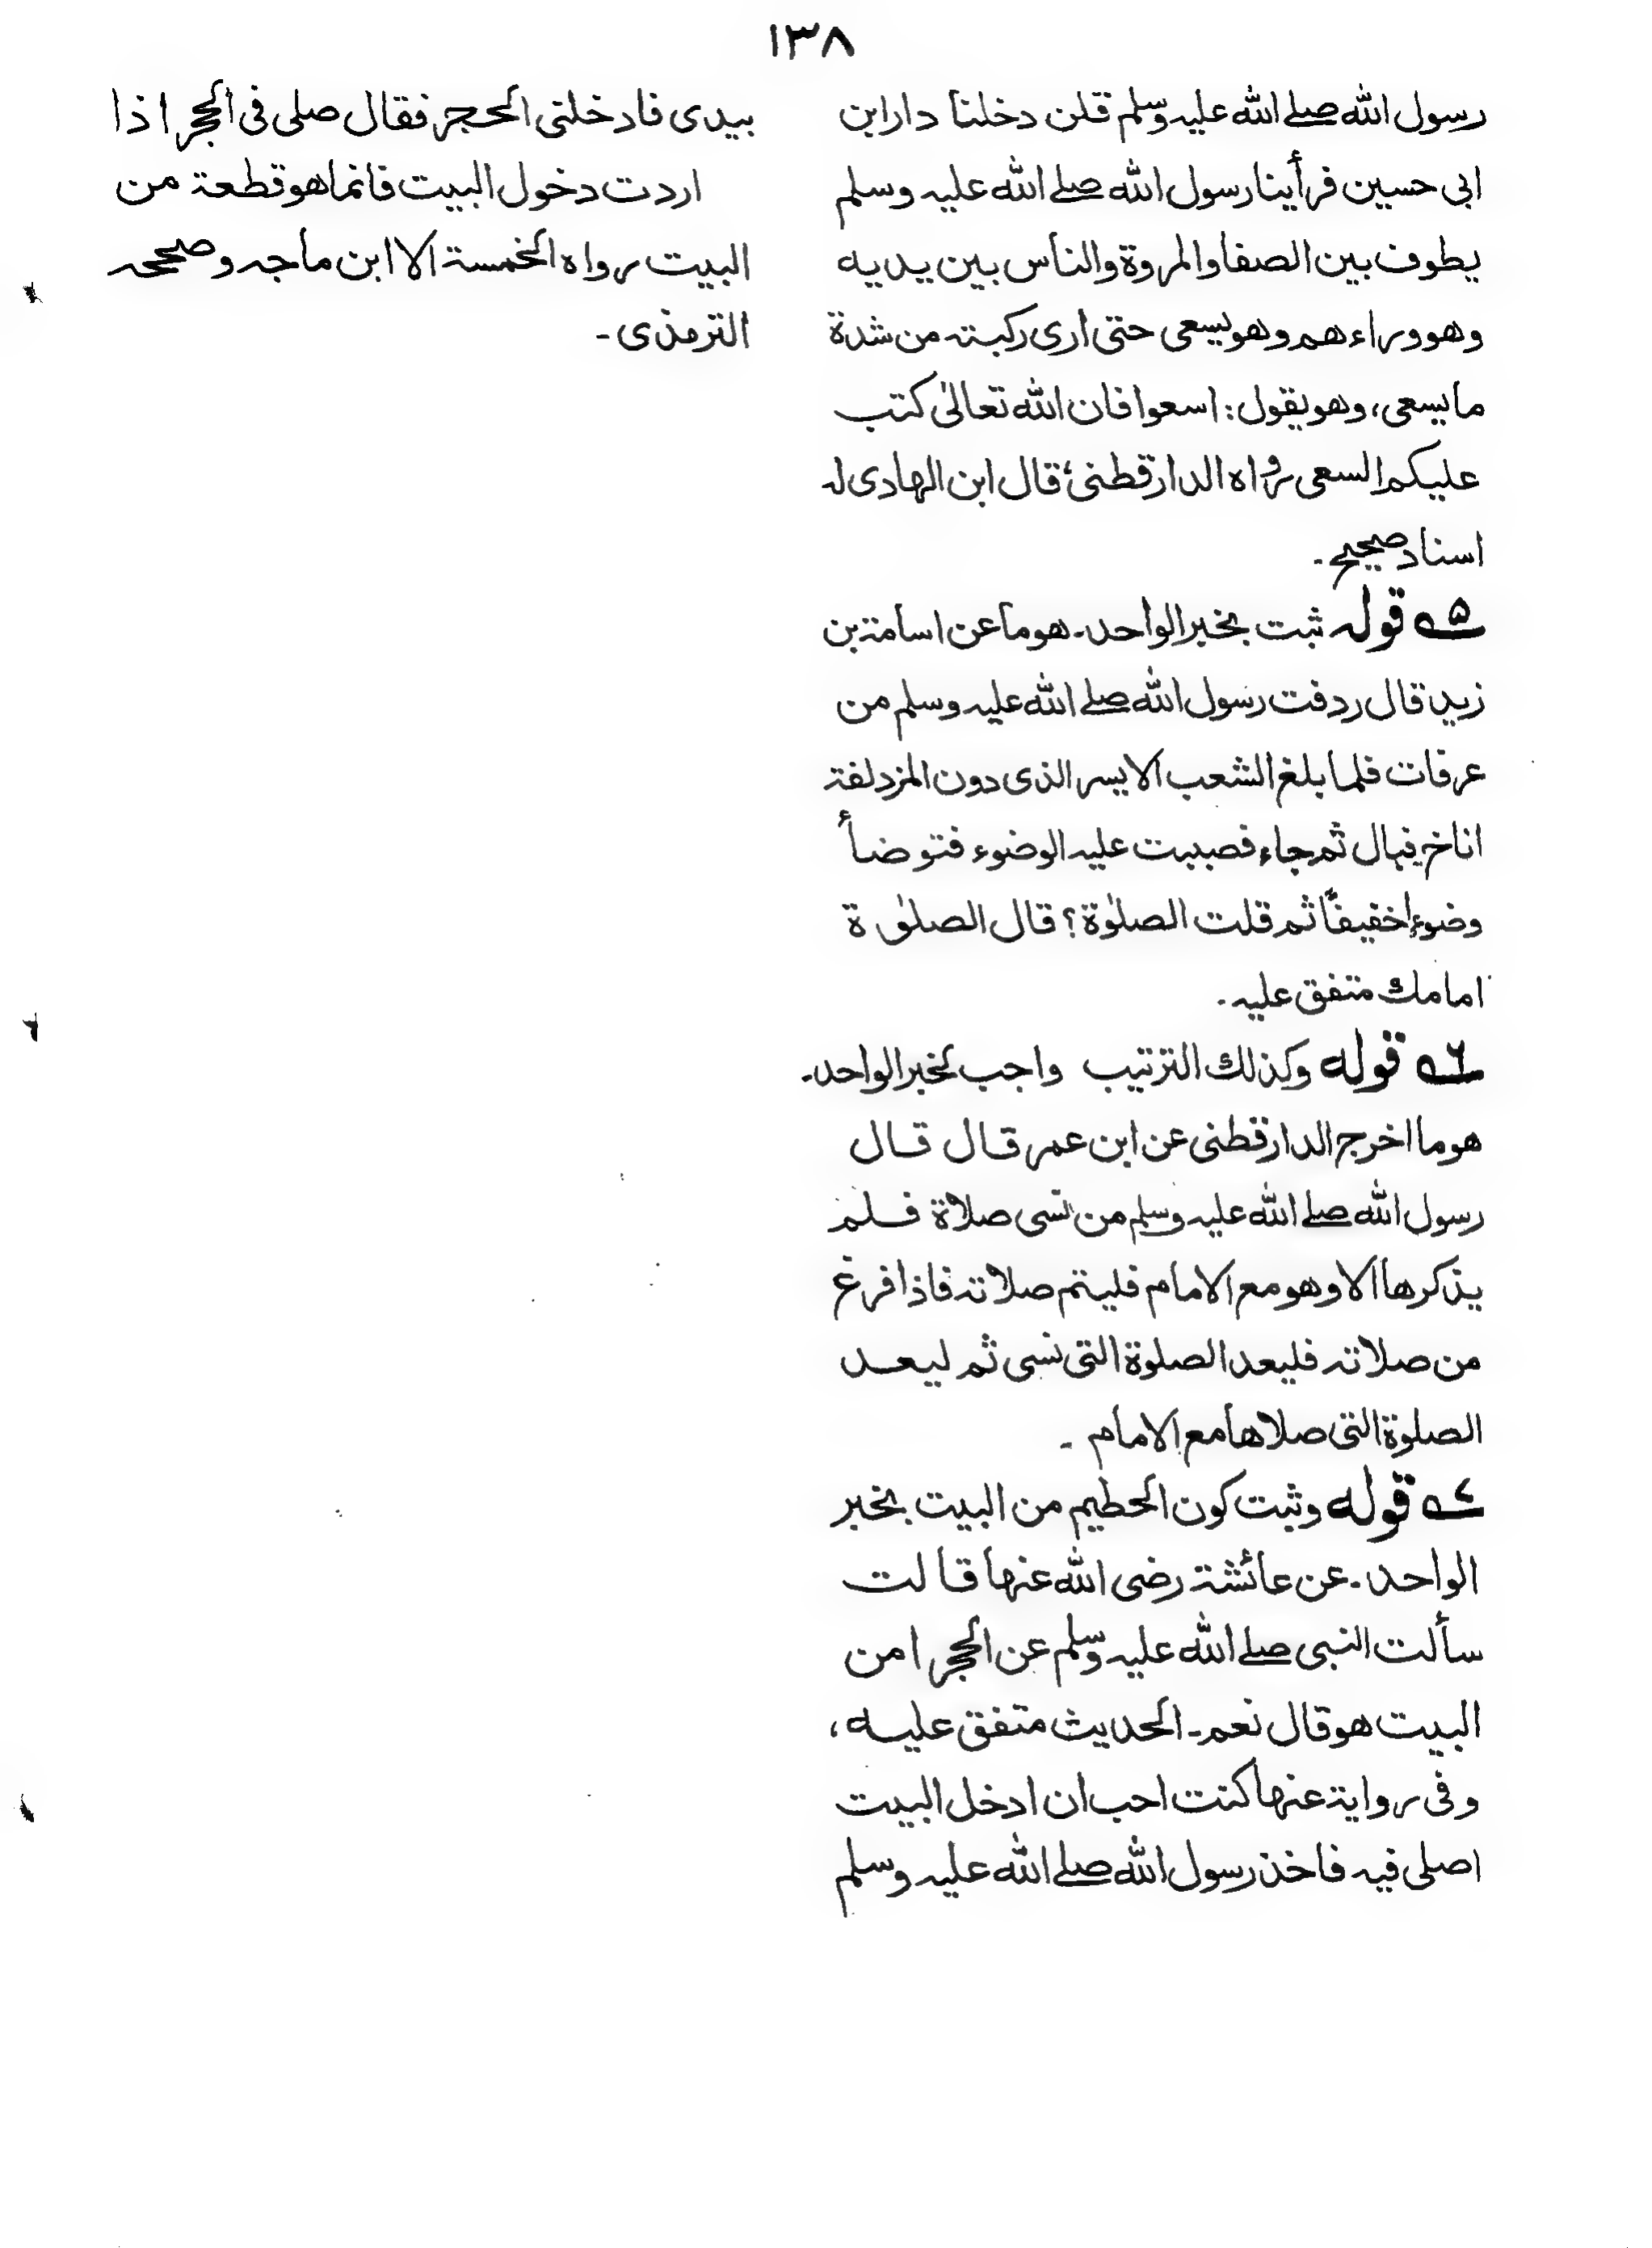 ١٣٨
رسول الله صلے الله عليه وسلم قلن دخلنا دار ابن
ابی حسين فرأينا رسول الله صلے الله عليه وسلم
يطوف بين الصفا والمروة والناس بين يديه
وهو وراءهم وهو يسعى حتى ارى ركبته من شدة
ما يسعى، وهو يقول: اسعوا فان الله تعالىٰ كتب
عليكم السعى رواه الدارقطنیؒ قال ابن الهادی له
اسناد صحيح۔
۵ قوله ثبت بخبر الواحد۔ هو ما عن اسامة بن
زيد قال ردفت رسول الله صلے الله عليه وسلم من
عرفات فلما بلغ الشعب الايسر الذی دون المزدلفة
اناخ فبال ثم جاء فصببت عليه الوضوء فتوضأ
وضوءاً خفيفاً ثم قلت الصلوٰة؟ قال الصلوٰة
امامك متفق عليه۔
۶ قوله وكذلك الترتيب واجب بخبر الواحد۔
هو ما اخرج الدارقطنی عن ابن عمر قال قال
رسول الله صلے الله عليه وسلم من نسی صلاة فلم
يذكرها الا وهو مع الامام فليتم صلاته فاذا فرغ
من صلاته فليعد الصلوة التی نسی ثم ليعد
الصلوة التی صلاها مع الامام ۔
۷ قوله وثبت كون الحطيم من البيت بخبر
الواحد۔ عن عائشة رضی الله عنها قالت
سألت النبی صلے الله عليه وسلم عن الحجر امن
البيت هو قال نعم۔ الحديث متفق عليه،
وفی رواية عنها كنت احب ان ادخل البيت
اصلی فيه فاخذ رسول الله صلے الله عليه وسلم
بيدی فادخلنی الحجر فقال صلی فی الحجر اذا
اردت دخول البيت فانما هو قطعة من
البيت رواه الخمسة الا ابن ماجه وصححه
الترمذی ۔